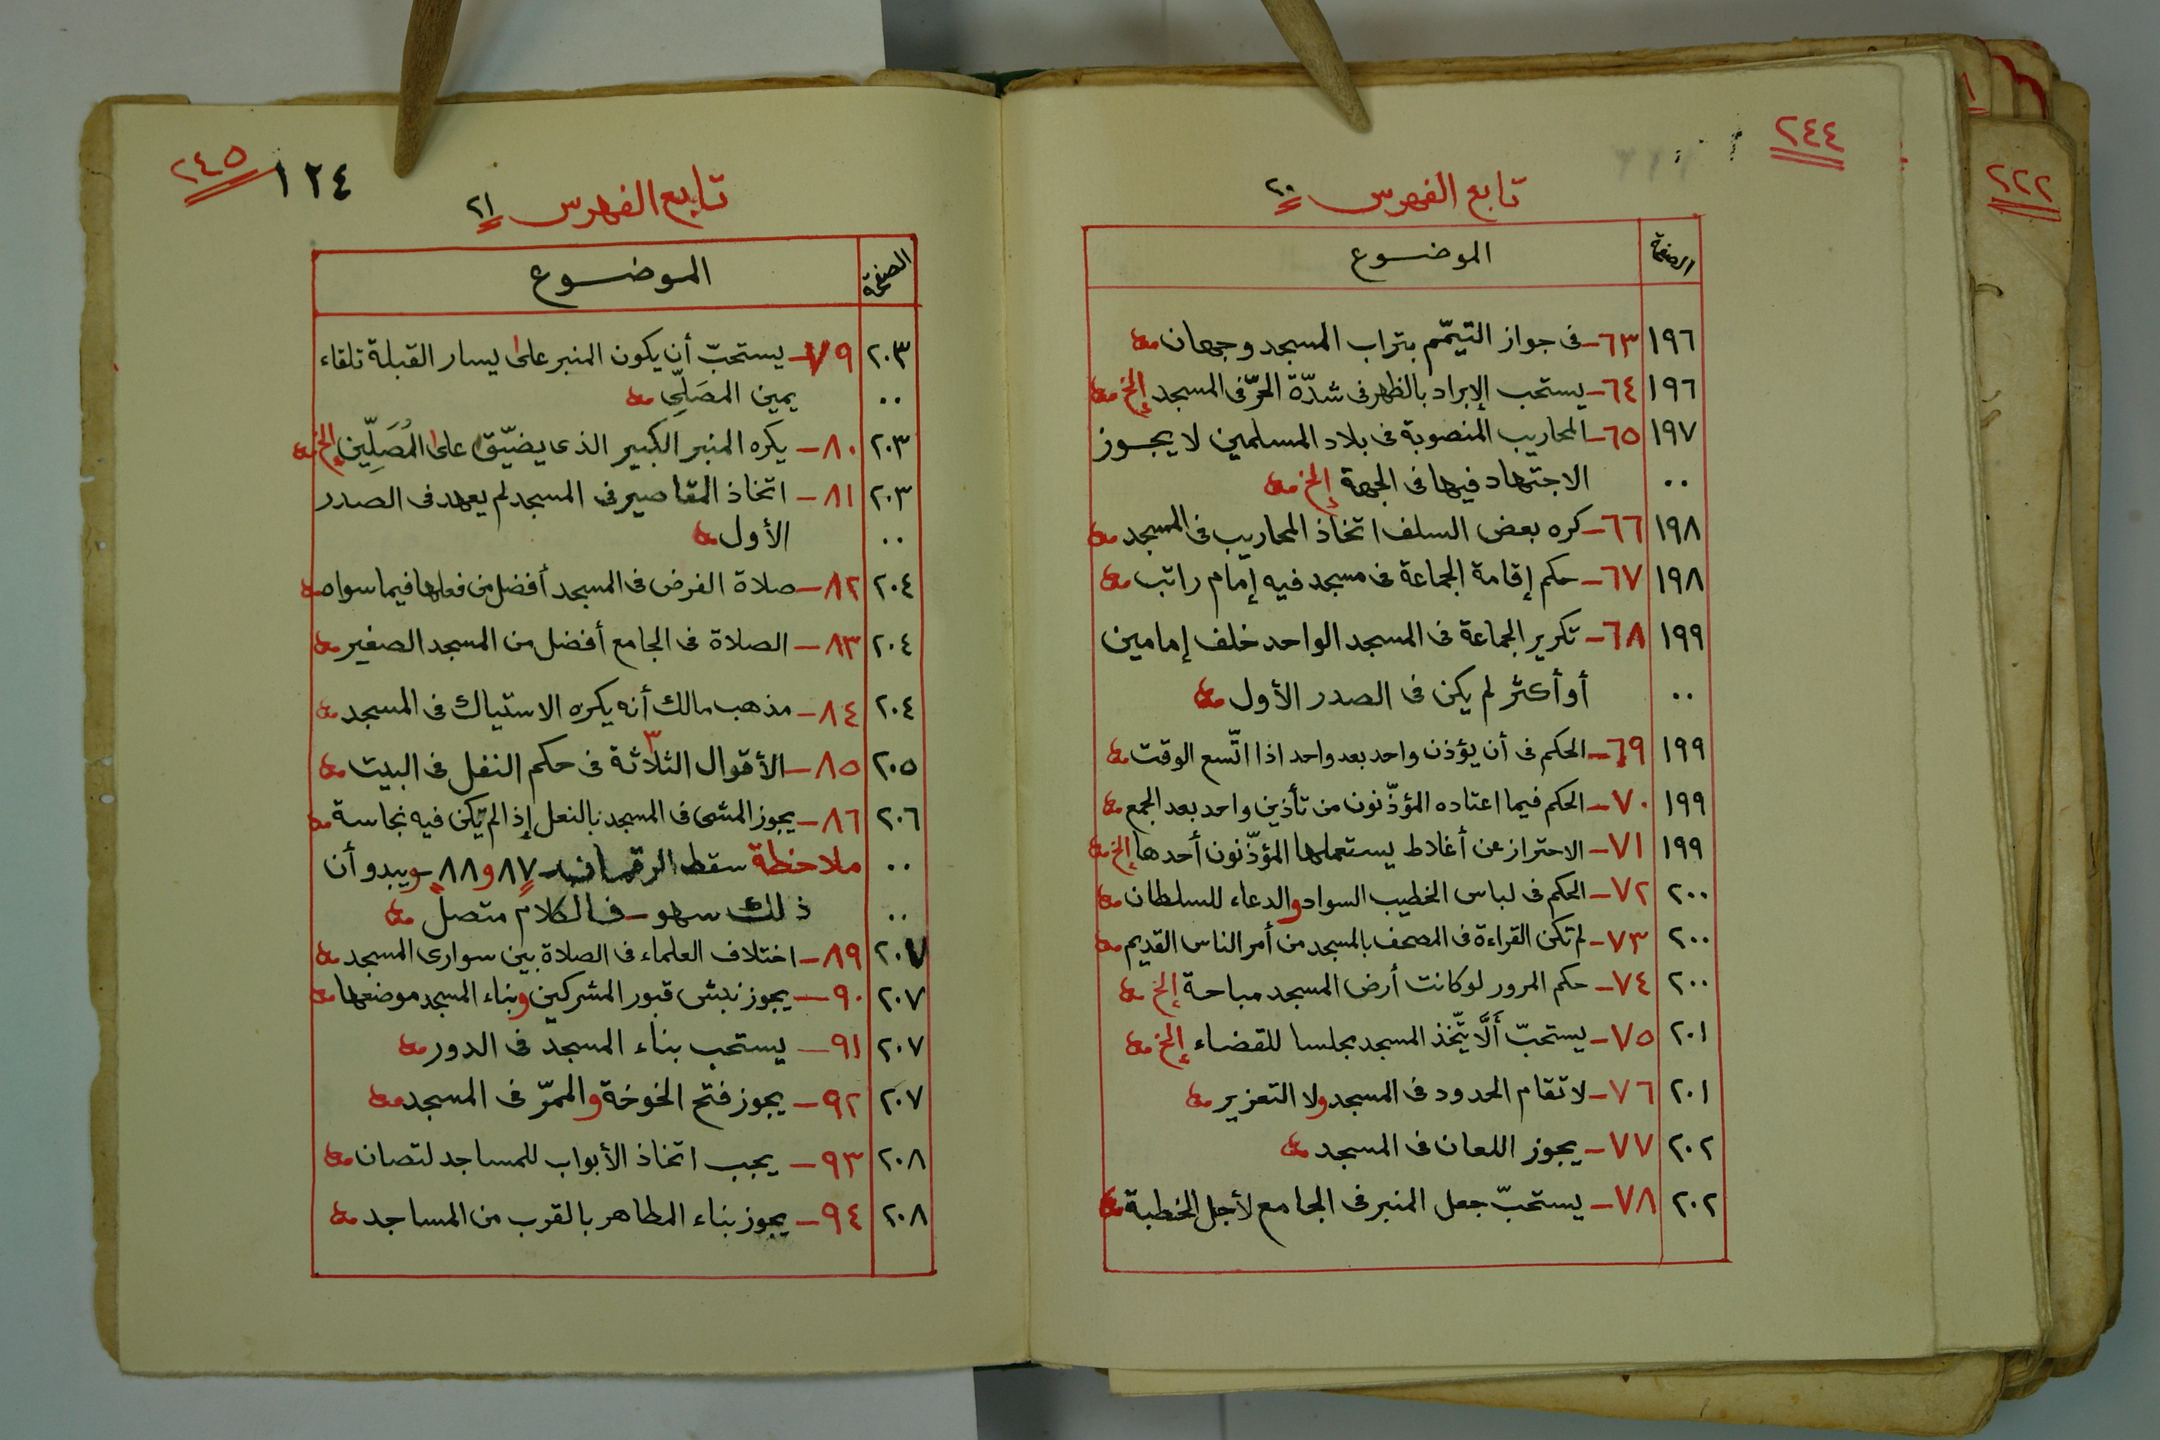 ٢٤٤
تابع الفهرس ٢٠
الصفحة الموضوع
١٩٦ ٦٣- فى جواز التيمّم بتراب المسجد وجهان
١٩٦ ٦٤- يستحب الإبراد بالظهر فى شدّة الحرّ فى المسجد إلخ
١٩٧ ٦٥- المحاريب المنصوبة فى بلاد المسلمين لا يجوز
٠٠ الاجتهاد فيها فى الجهة إلخ
١٩٨ ٦٦- كره بعض السلف اتخاذ المحاريب فى المسجد
١٩٨ ٦٧- حكم إقامة الجماعة فى مسجد فيه إمام راتب
١٩٩ ٦٨- تكرير الجماعة فى المسجد الواحد خلف إمامين
٠٠ أو أكثر لم يكن فى الصدر الأول
١٩٩ ٦٩- الحكم فى أن يؤذن واحد بعد واحد اذا اتّسع الوقت
١٩٩ ٧٠- الحكم فيما اعتاده المؤذّنون من تأذين واحد بعد الجمع
١٩٩ ٧١- الاحتراز عن أغلاط يستعملها المؤذّنون أحدها إلخ
٢٠٠ ٧٢- الحكم فى لباس الخطيب السواد والدعاء للسلطان
٢٠٠ ٧٣- لم تكن القراءة فى المصحف بالمسجد من أمر الناس القديم
٢٠٠ ٧٤- حكم المرور لو كانت أرض المسجد مباحة إلخ
٢٠١ ٧٥- يستحبّ ألَّا يتّخذ المسجد مجلسا للقضاء إلخ
٢٠١ ٧٦- لا تقام الحدود فى المسجد ولا التعزير
٢٠٢ ٧٧- يجوز اللعان فى المسجد
٢٠٢ ٧٨- يستحبّ جعل المنبر فى الجامع لأجل الخطبة
٢٢٢
٢٤٥ ١٢٤
تابع الفهرس ٢١
الصفحة الموضوع
٢٠٣ ٧٩- يستحبّ أن يكون المنبر على يسار القبلة تلقاء
٠٠ يمين المصَلِّى
٢٠٣ ٨٠- يكره المنبر الكبير الذى يضيّق على المُصَلِّين إلخ
٢٠٣ ٨١- اتخاذ المقاصير فى المسجد لم يعهد فى الصدر
٠٠ الأول
٢٠٤ ٨٢- صلاة الفرض فى المسجد أفضل من فعلها فيما سواه
٢٠٤ ٨٣- الصلاة فى الجامع أفضل من المسجد الصغير
٢٠٤ ٨٤- مذهب مالك أنه يكره الاستياك فى المسجد
٢٠٥ ٨٥- الأقوال الثلاثة ٣ فى حكم النفل فى البيت
٢٠٦ ٨٦- يجوز المشى فى المسجد بالنعل إذا لم يكن فيه نجاسة
٠٠ ملاحظة سقط الرقمان ٨٧ و ٨٨ - ويبدو أن
٠٠ ذلك سهو - فالكلام متصل
٢٠٧ ٨٩- اختلاف العلماء فى الصلاة بين سوارى المسجد
٢٠٧ ٩٠- يجوز نبش قبور المشركين وبناء المسجد موضعها
٢٠٧ ٩١- يستحب بناء المسجد فى الدور
٢٠٧ ٩٢- يجوز فتح الخوخة والممرّ فى المسجد
٢٠٨ ٩٣- يجب اتخاذ الأبواب للمساجد لتصان
٢٠٨ ٩٤- يجوز بناء المطاهر بالقرب من المساجد